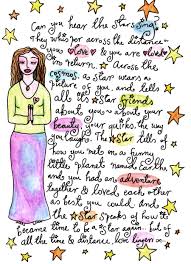 Can you hear the stars sing?
They whisper across the distance~
"you're Love & you are loved
in return." Across the
cosmos, a star wears a
picture of you, and tells
all its star friends
about you ~ about your
beauty, your quirks, the way
you laughed. The Star tells of
how you met on a funny
little planet named earth,
and you had an adventure
together & loved each other
as best you could and
the Star speaks of how it
became time to be a star again. but of
all the time & distance, love lingers~